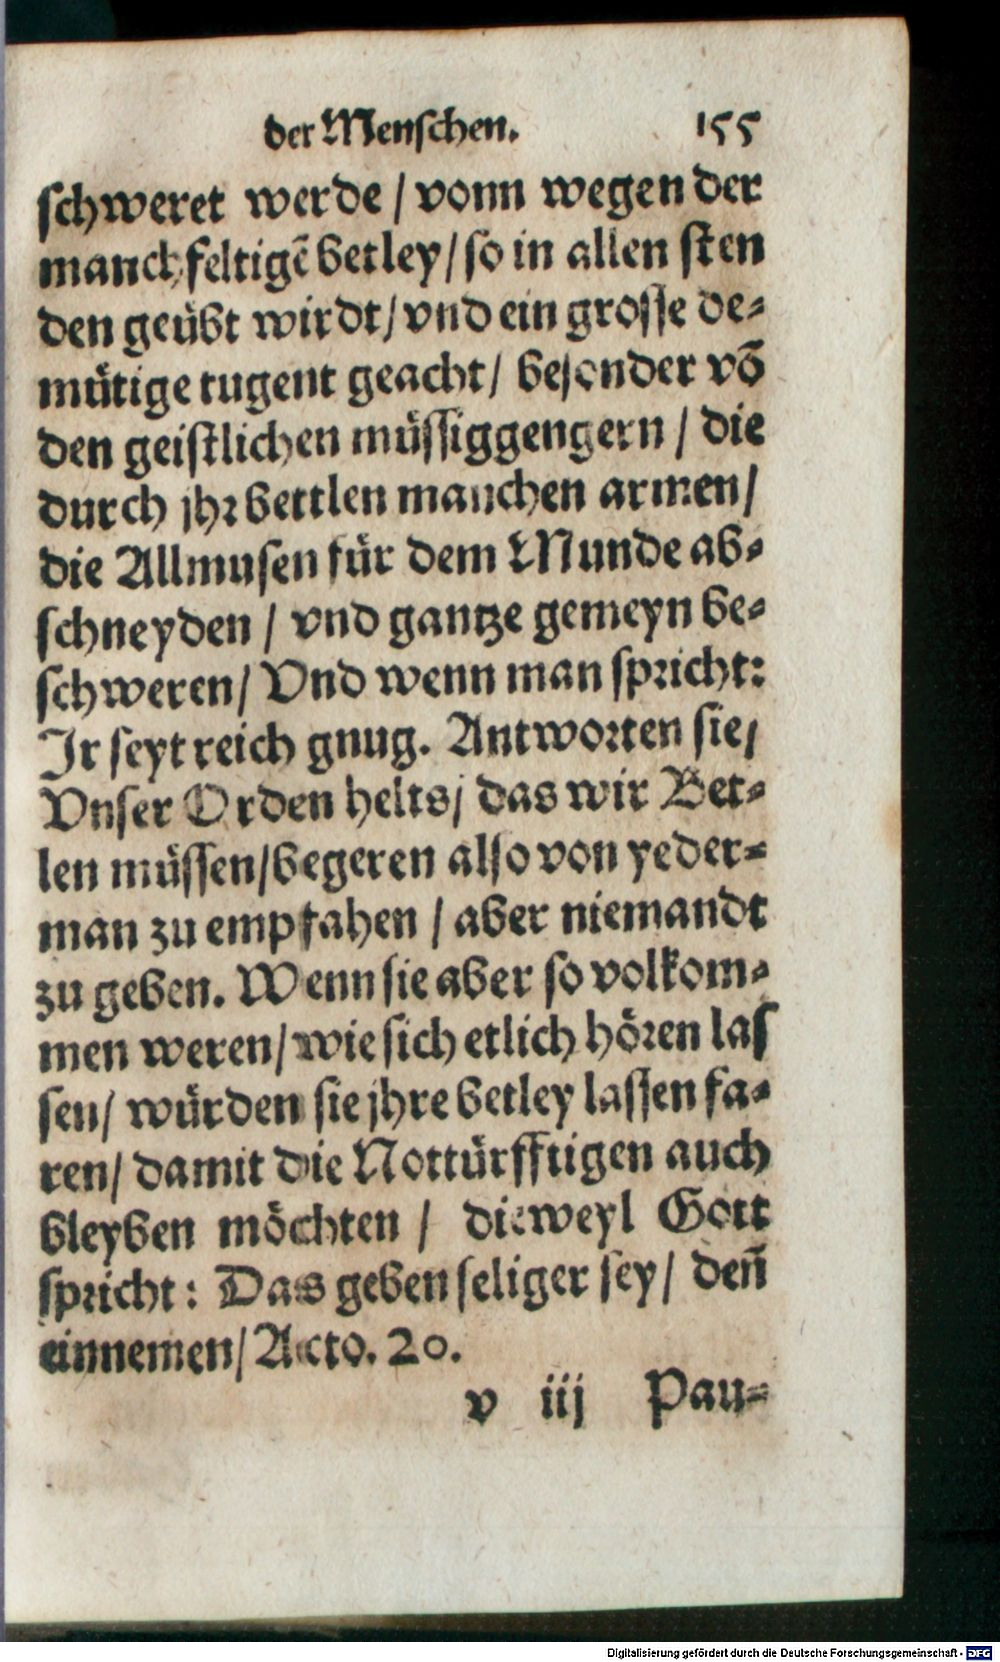 der Menschen. 155
schweret werde / vonn wegen der
manchfeltigē betley / so in allen sten
den geübt wirdt / vnd ein grosse de-
mütige tugent geacht / besonder vō
den geistlichen müssiggengern / die
durch jhr bettlen manchen armen /
die Allmusen für dem Munde ab-
schneyden / vnd gantze gemeyn be-
schweren / Vnd wenn man spricht:
Jr seyt reich gnug. Antworten sie /
Vnser Orden helts / das wir Bet-
len müssen / begeren also von yeder-
man zu empfahen / aber niemandt
zu geben. Wenn sie aber so volkom-
men weren / wie sich etlich hören las
sen / würden sie jhre betley lassen fa-
ren / damit die Nottürfftigen auch
bleyben möchten / dieweyl Gott
spricht: Das geben seliger sey / den̄
einnemen / Acto. 20.
v iij Pau-
Digitalisierung gefördert durch die Deutsche Forschungsgemeinschaft - DFG